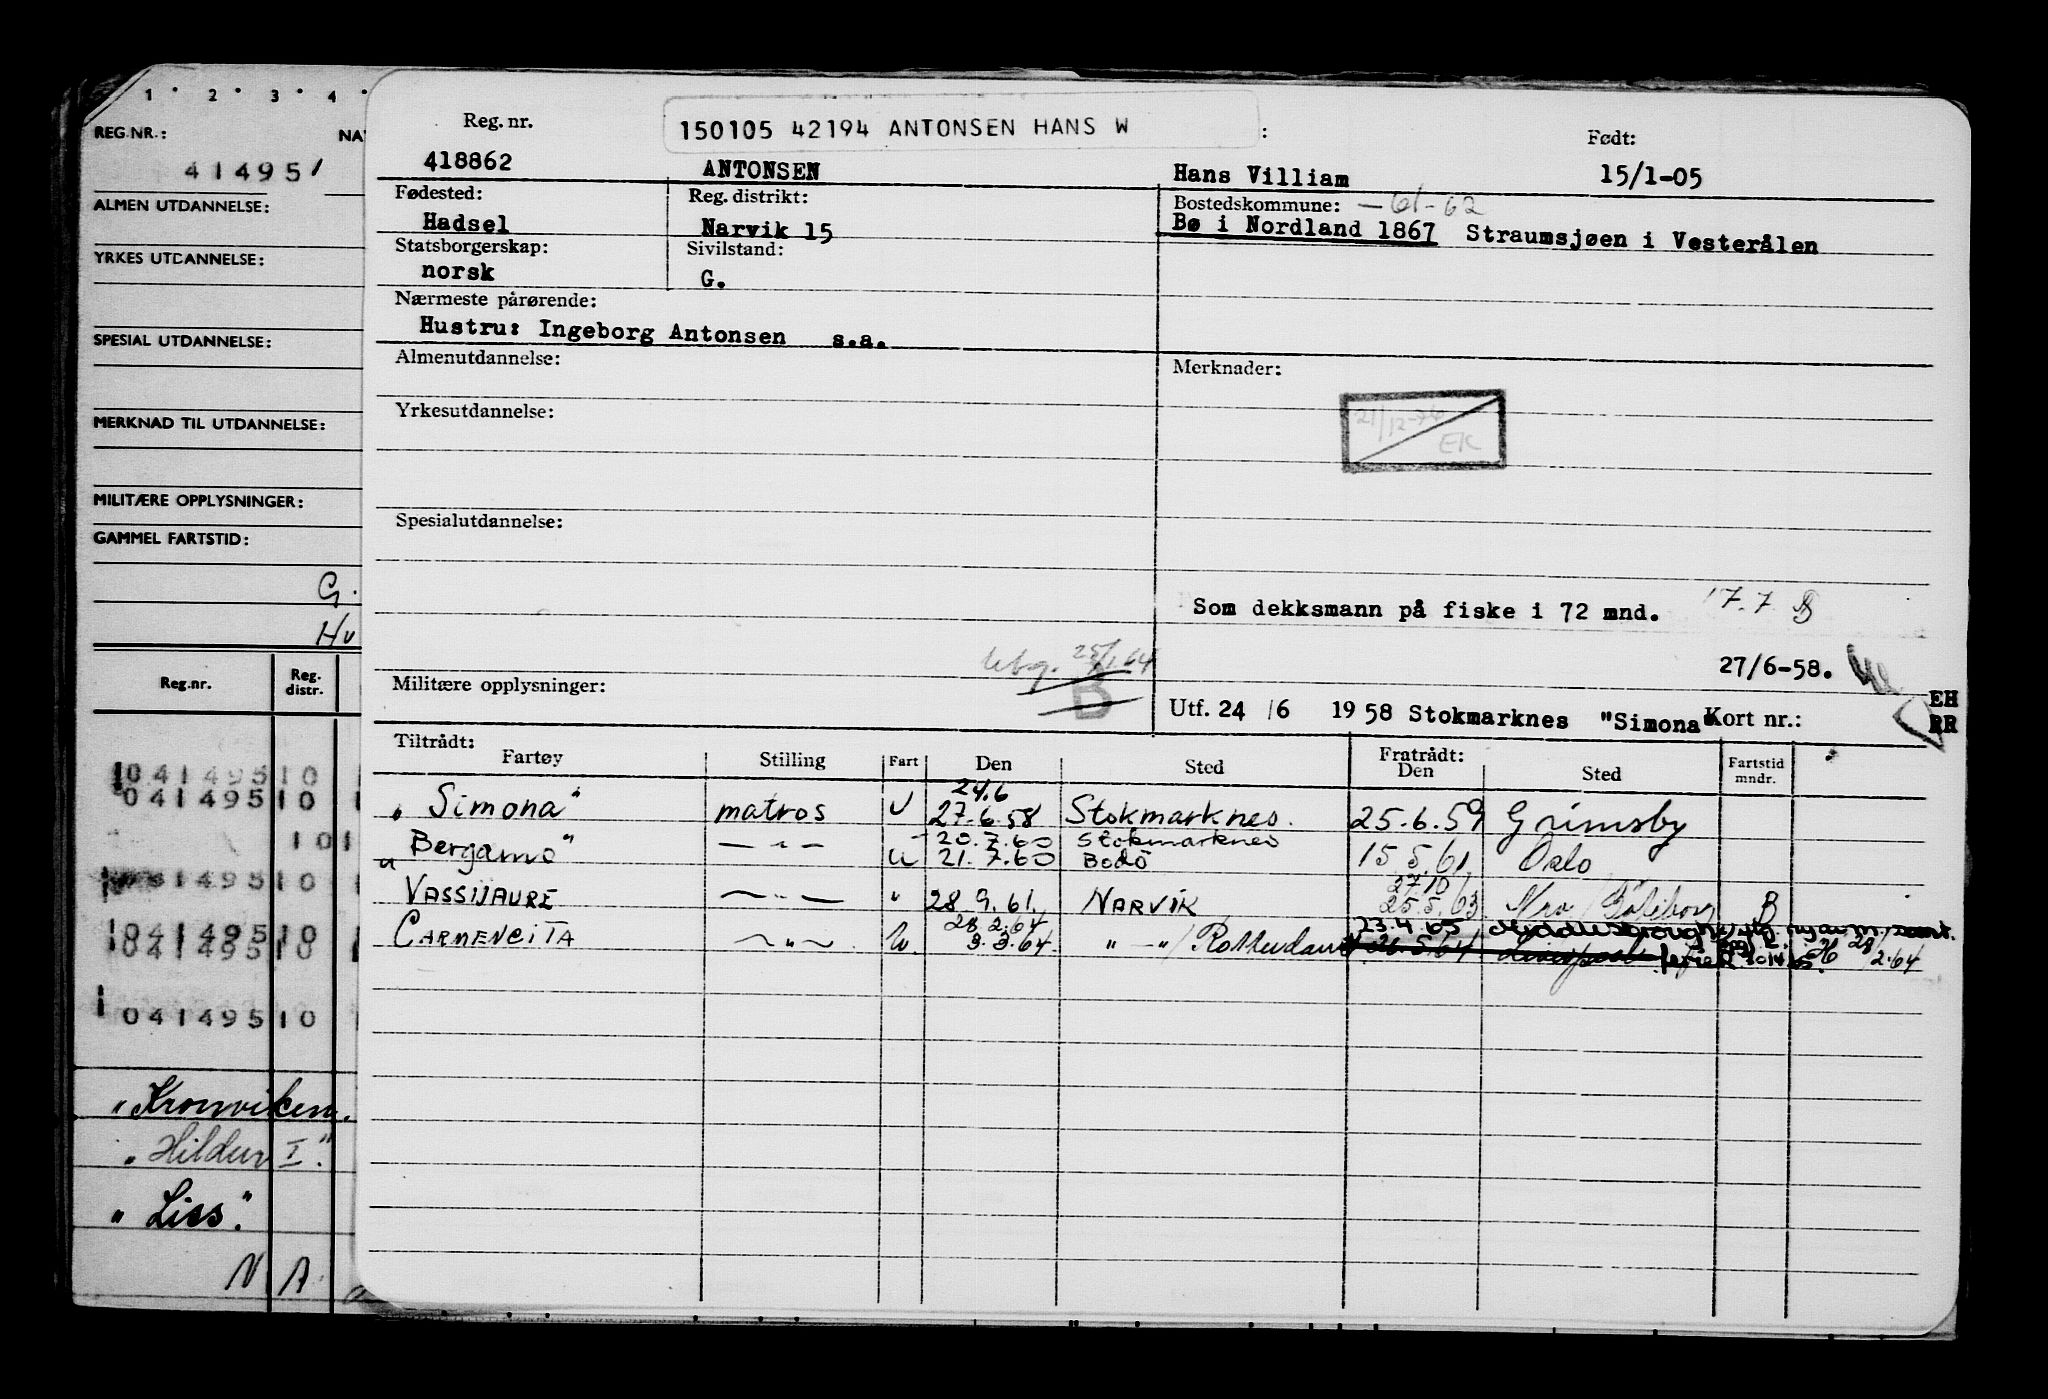 1 2 3 4
REG.NR.: NA
41495
ALMEN UTDANNELSE:
YRKES UTDANNELSE:
SPESIAL UTDANNELSE:
MERKNAD TIL UTDANNELSE:
MILITÆRE OPPLYSNINGER:
GAMMEL FARTSTID:
G.
Hv
Reg.nr. Reg. distr.
041495 10
041495 10
10 1
41495 10
041495 10
041495 10
041495 10
"Kronviken.
"Hildur I."
"Liss".
N A.
Reg. nr. 150105 42194 ANTONSEN HANS W : Født:
418862 ANTONSEN Hans Villiam 15/1-05
Fødested: Reg. distrikt: Bostedskommune: -61-62
Hadsel Narvik 15 Bø i Nordland 1867 Straumsjøen i Vesterålen
Statsborgerskap: Sivilstand:
norsk G.
Nærmeste pårørende:
Hustru: Ingeborg Antonsen s.a.
Almenutdannelse: Merknader:
Yrkesutdannelse: 21/12-76
EK
Spesialutdannelse:
Som dekksmann på fiske i 72 mnd. 17.7
utg. 25/1 64
27/6-58.
Militære opplysninger: B
EH
Utf. 24 /6 19 58 Stokmarknes "Simona" Kort nr.: RR
Tiltrådt: Fratrådt:
Fartøy Stilling Fart Den Sted Den Sted Fartstid mndr.
24.6
"Simona" matros U 27.6.58 Stokmarknes. 25.6.59 Grimsby
20.7.60 Stokmarknes
"Bergamo" — " — U 21.7.60 Bodö 15.5.61 Oslo
27.10
VASSIJAURE — " — " 28.9.61 NARVIK 25.5.63 Göteborg B
28.2.64 23.4.65 Middlesbrough
CARMENCITA — " — U. 3.3.64 " — " / Rotterdam 26.5.64 Liverpool 28/2.64